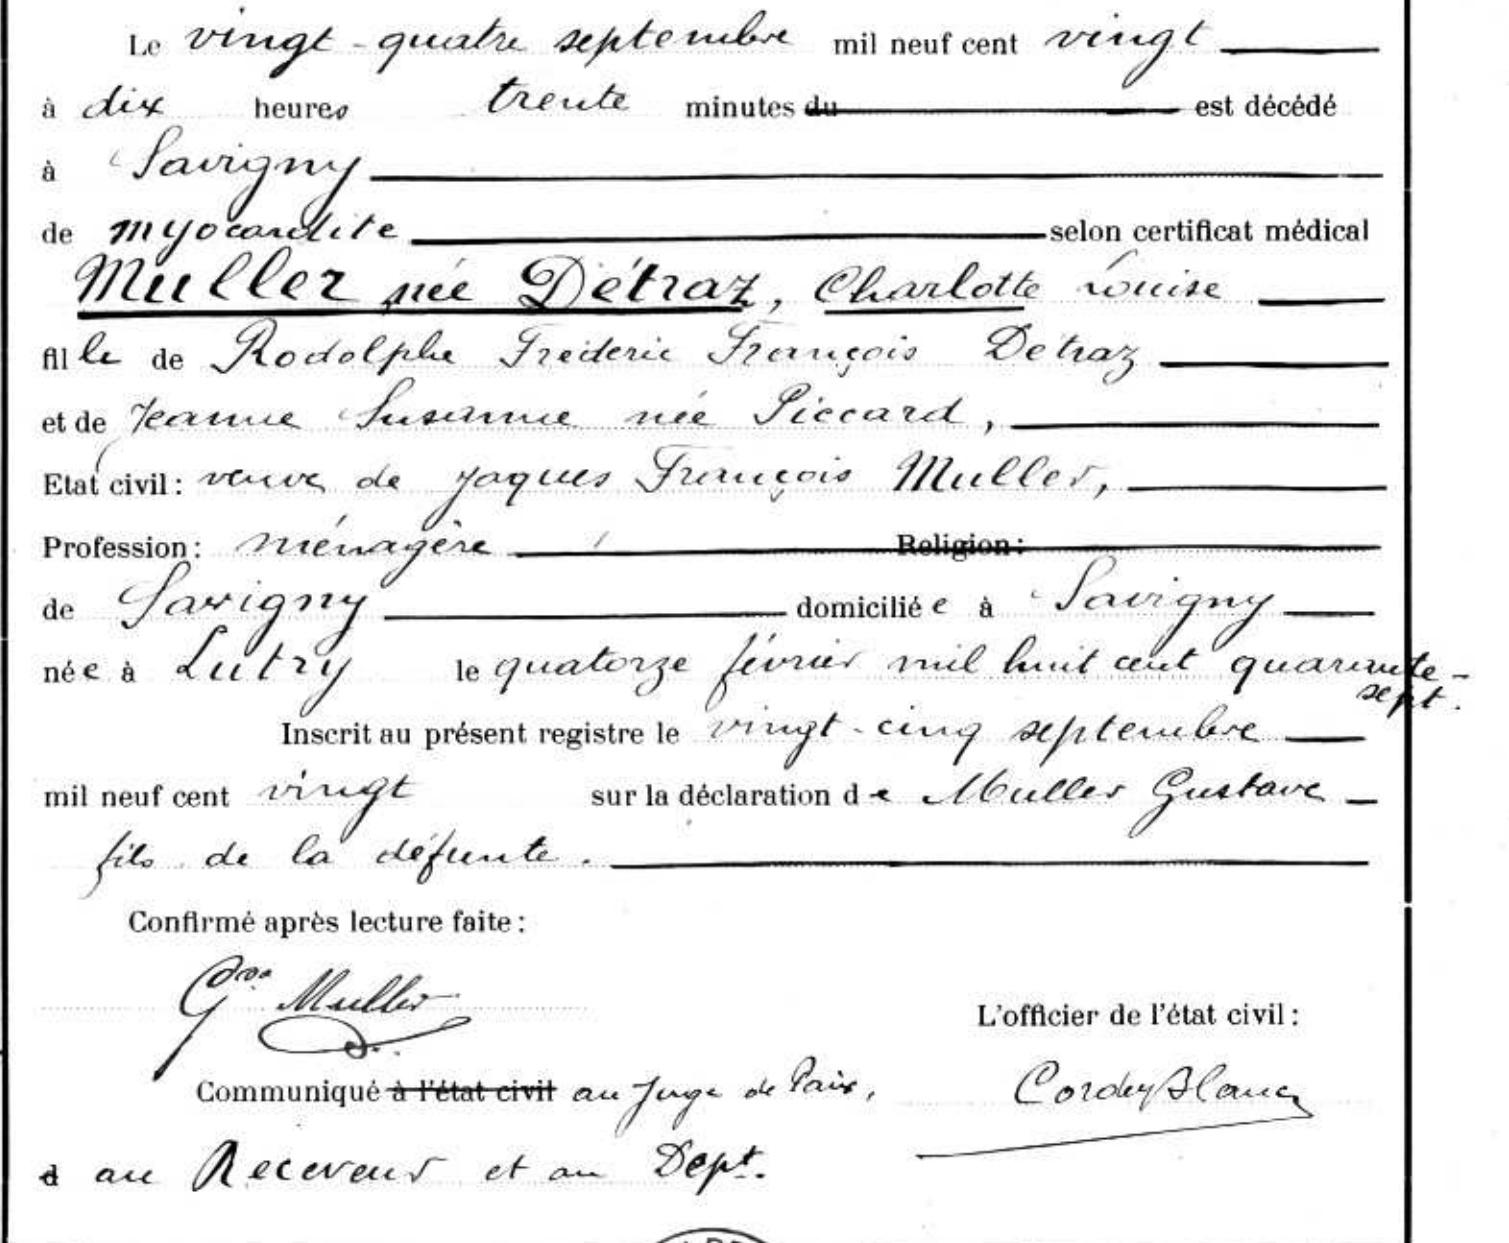 Le vingt-quatre septembre mil neuf cent vingt
à dix heures trente minutes du est décédé
à Savigny
de myocardite selon certificat médical
Muller née Détraz, Charlotte Louise
fille de Rodolphe Frédéric François Détraz
et de Jeanne Susanne née Piccard,
Etat civil: veuve de Jaques François Muller,
Profession: ménagère Religion:
de Savigny domiciliée à Savigny
née à Lutry le quatorze février mil huit cent quarante-
sept.
Inscrit au présent registre le vingt-cinq septembre
mil neuf cent vingt sur la déclaration de Muller Gustave
fils de la défunte.
Confirmé après lecture faite:
Gve Muller
L'officier de l'état civil:
Communiqué à l'état civil au Juge de Paix, Cordey Blanc
au Receveur et au Dept.